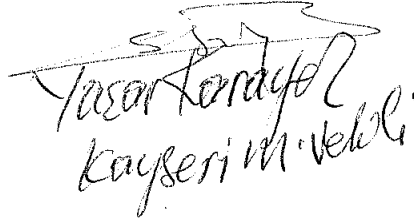 Yaşar Karayel
Kayseri m.vekili